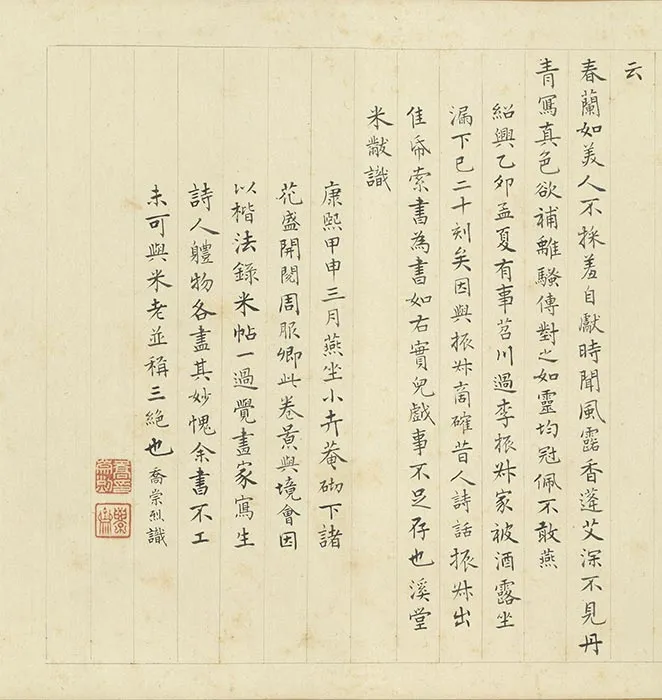 云
春蘭如美人不採羞自獻時聞風露香蓬艾深不見丹
青寫真色欲補離騷傳對之如靈均冠佩不敢燕
紹興乙卯孟夏有事苕川過李振叔家被酒露坐
漏下已二十刻矣因與振叔商確昔人詩話振叔出
佳帋索書為書如右實兒戲事不足存也溪堂
米黻識
康熙甲申三月燕坐小卉菴砌下諸
花盛開閱周服卿此卷景與境會因
以楷法錄米帖一過覺畫家寫生
詩人體物各盡其妙愧余書不工
未可與米老並稱三絕也喬崇烈識